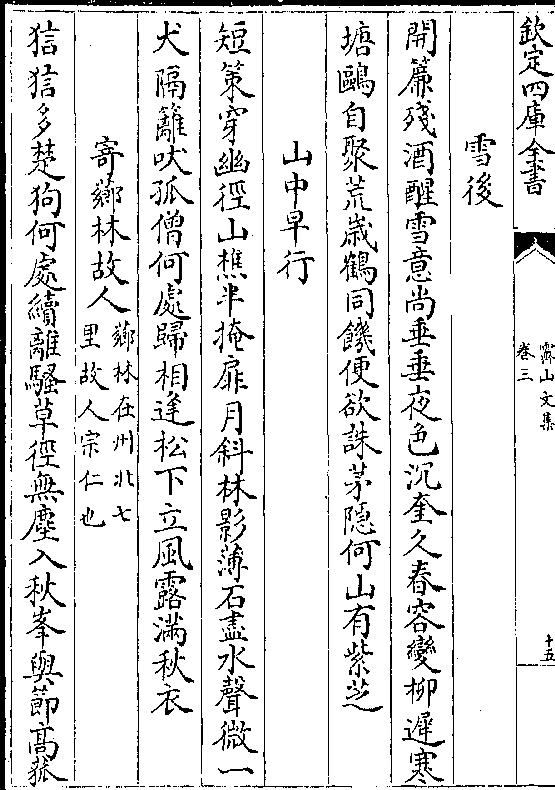 欽定四庫全書
霽山文集
卷三
十五
雪後
開簾殘酒醒雪意尚垂垂夜色沉奎久春容變柳遲寒
塘鷗自聚荒歲鶴同饑便欲誅茅隱何山有紫芝
山中早行
短策穿幽徑山樵半掩扉月斜林影薄石盡水聲微一
犬隔籬吠孤僧何處歸相逢松下立風露滿秋衣
寄薌林故人
薌林在州北七
里故人宗仁也
狺狺多楚狗何處續離騷草徑無塵入秋峯與節高